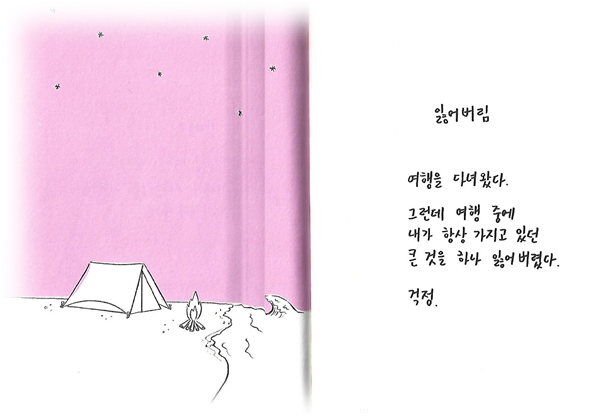 잃어버림
여행을 다녀왔다.
그런데 여행 중에
내가 항상 가지고 있던
큰 것을 하나 잃어버렸다.
걱정.